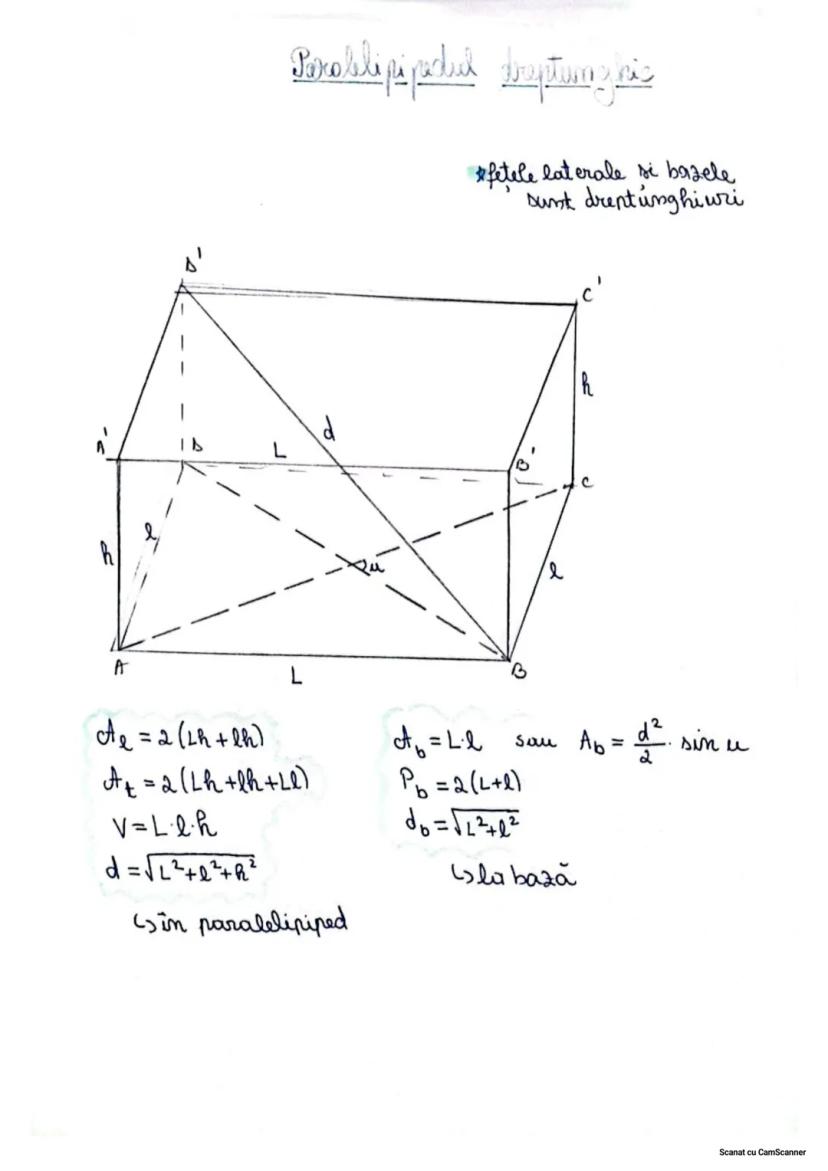 Paralelipipedul dreptunghic
*fețele laterale și bazele
sunt dreptunghiuri
D'
C'
h
d
A'
D
L
B'
C
l
h
u
l
A
L
B
Al = 2(Lh + lh)
At = 2(Lh + lh + Ll)
V = L·l·h
d = √L²+l²+h²
↳ în paralelipiped
Ab = L·l sau Ab = d²/2 · sin u
Pb = 2(L+l)
db = √L²+l²
↳ la bază
Scanat cu CamScanner